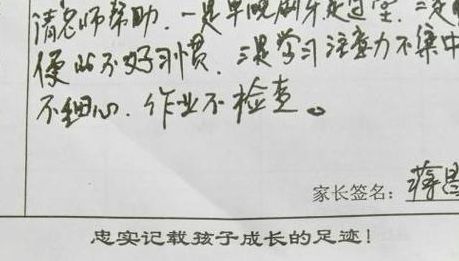 请老师帮助．一是早晚刷牙走过堂．二是
便的不好习惯．三是学习注意力不集中
不细心．作业不检查。
家长签名：蒋
忠实记载孩子成长的足迹！